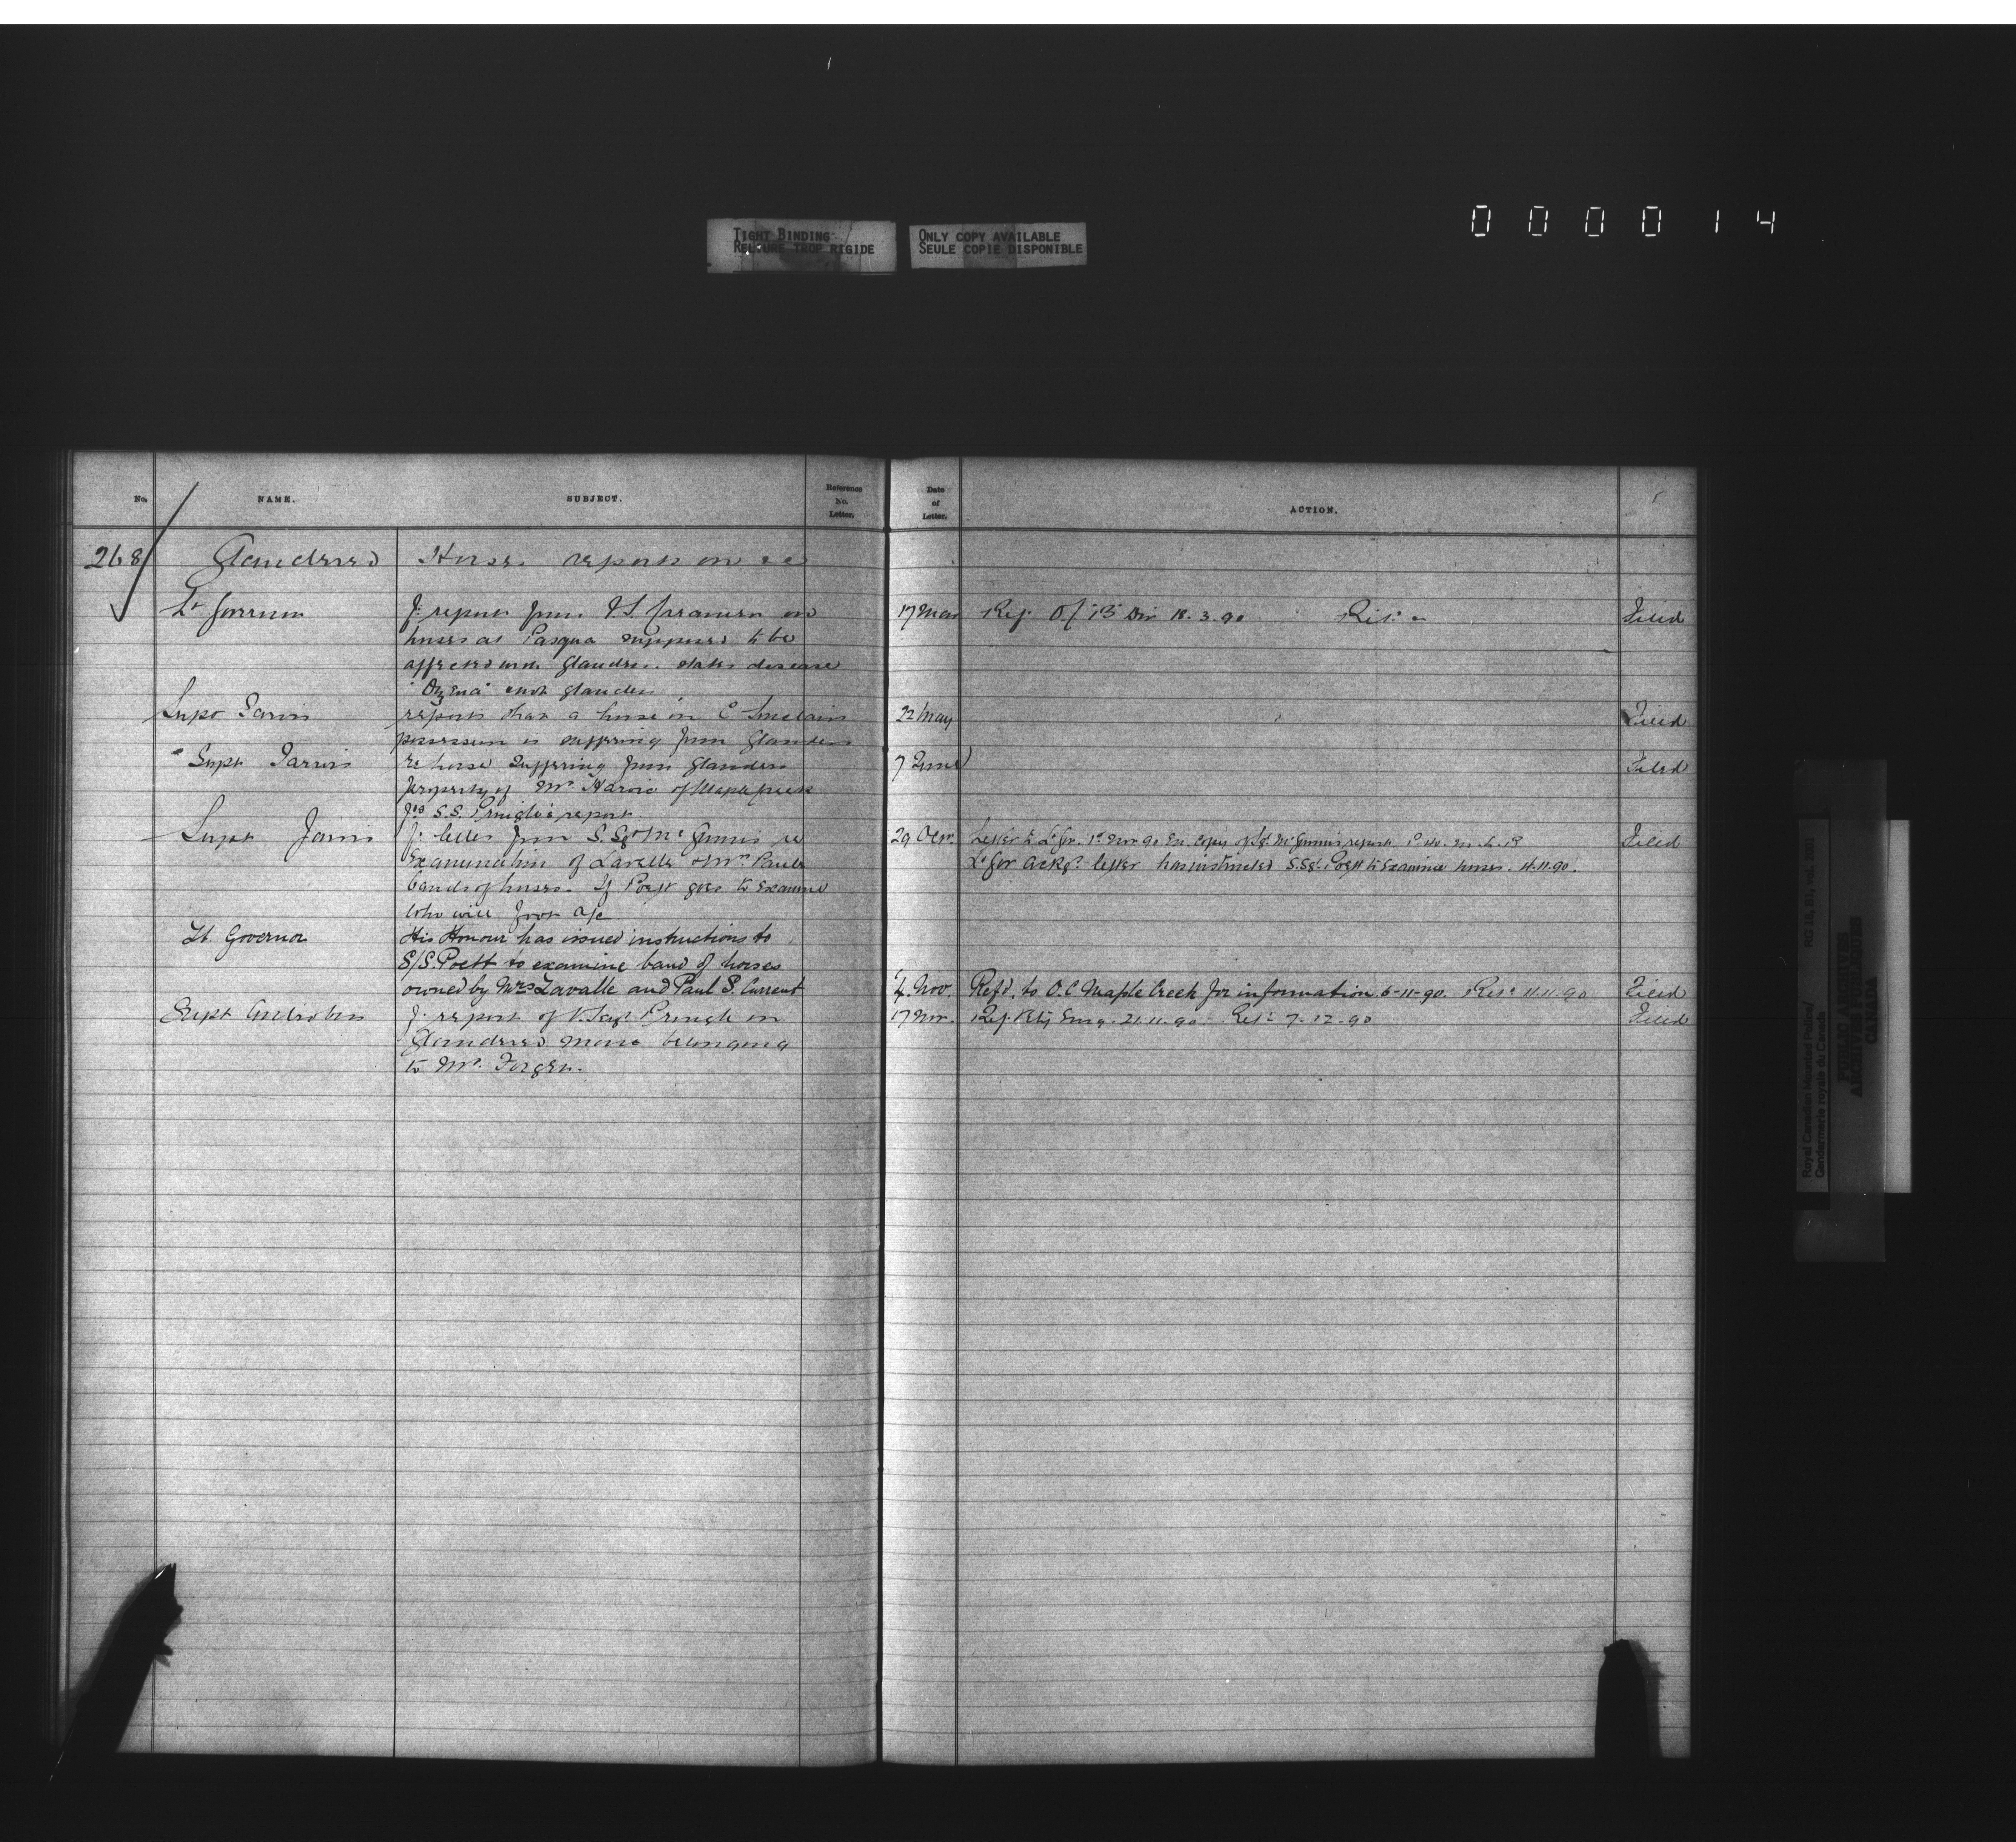 000014
TIGHT BINDING
RELIURE TROP RIGIDE
ONLY COPY AVAILABLE
SEULE COPIE DISPONIBLE
No.
NAME.
SUBJECT.
Reference
No.
Letter.
Date
of
Letter.
ACTION.
268 Glandered Horses reports on
Lt Governor f. report from on 17 Mar Ref. O/ "B" Div 18.3.90 Filed
horses at Pasqua supposed to be
affected with Glanders. states disease
"Ozena" & not glanders
Supt Jarvis reports that a horse in possession is suffering from Glanders 22 May Filed
Supt Jarvis re horse suffering from Glanders 7 June Filed
property of Mr of Maple Creek
S.S. Pringle's report.
Supt Jarvis f. letter from S. Sgt McGinnis re 29 Letter to Lt Gov. 1st Nov 90 En. copy of Sgt McGinnis report Filed
Examination of Lavelle & Mr. Pauls Lt Gov ackgs letter has instructed S.Sgt. Poett to Examine horses. 4.11.90.
bands of horses. If Poett goes to Examine
who will foot a/c
Lt. Governor His Honour has issued instructions to
S/S. Poett to examine band of horses
owned by Mrs Lavalle and Paul S. Current 4 Nov. Refd. to O.C Maple Creek for information 6-11-90. 11.11.90 Filed
Supt Antrobus f. report of Pringle on 17 Nov. Ref. 21.11.90. 7-12-90 Filed
Glandered mare belonging
to Mr.
Royal Canadian Mounted Police/
Gendarmerie royale du Canada
RG 18, B1, vol.
PUBLIC ARCHIVES
ARCHIVES PUBLIQUES
CANADA